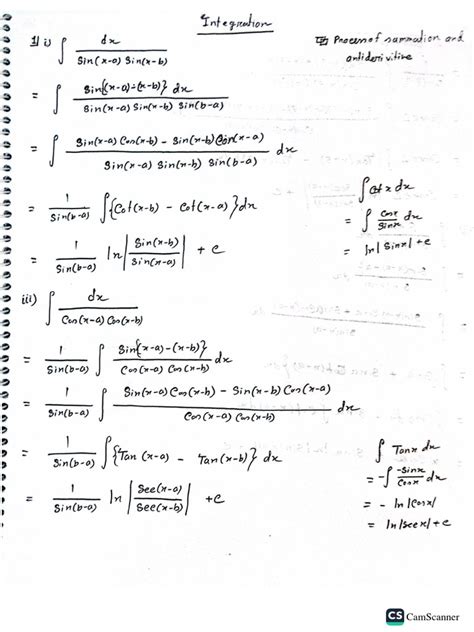 Integration
1) i) ∫ dx / Sin(x-a) Sin(x-b)
Process of summation and
antiderivitive
= ∫ Sin{(x-a)-(x-b)} dx / Sin(x-a) Sin(x-b) Sin(b-a)
= ∫ Sin(x-a) Cos(x-b) - Sin(x-b) Cos(x-a) / Sin(x-a) Sin(x-b) Sin(b-a) dx
= 1 / Sin(b-a) ∫ {Cot(x-b) - Cot(x-a)} dx
= 1 / Sin(b-a) ln | Sin(x-b) / Sin(x-a) | + c
∫ Cot x dx
= ∫ Cosx / Sinx dx
= ln |Sinx| + c
iii) ∫ dx / Cos(x-a) Cos(x-b)
= 1 / Sin(b-a) ∫ Sin{(x-a)-(x-b)} / Cos(x-a) Cos(x-b) dx
= 1 / Sin(b-a) ∫ Sin(x-a) Cos(x-b) - Sin(x-b) Cos(x-a) / Cos(x-a) Cos(x-b) dx
= 1 / Sin(b-a) ∫ {Tan (x-a) - Tan(x-b)} dx
= 1 / Sin(b-a) ln | Sec(x-a) / Sec(x-b) | + c
∫ Tanx dx
= -∫ -Sinx / Cosx dx
= - ln |Cosx|
= ln |secx| + c
CS CamScanner